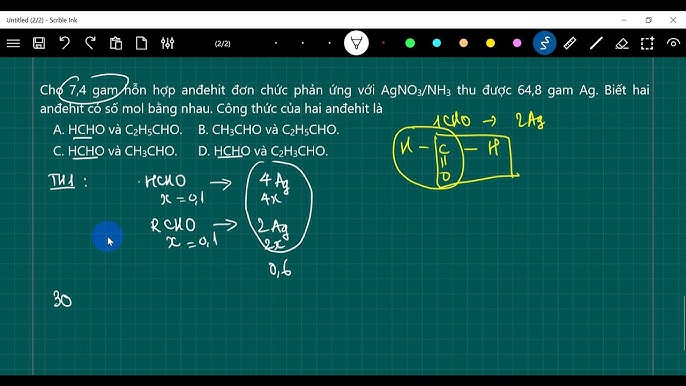 Untitled (2/2) - Scrble Ink
(2/2)
Cho 7,4 gam hỗn hợp anđehit đơn chức phản ứng với AgNO₃/NH₃ thu được 64,8 gam Ag. Biết hai
anđehit có số mol bằng nhau. Công thức của hai anđehit là
A. HCHO và C₂H₅CHO. B. CH₃CHO và C₂H₅CHO.
C. HCHO và CH₃CHO. D. HCHO và C₂H₃CHO.
1CHO → 2Ag
H - C - H
O
TH1 :
HCHO → 4Ag
x = 0,1 4x
RCHO → 2Ag
x = 0,1 2x
0,6
30